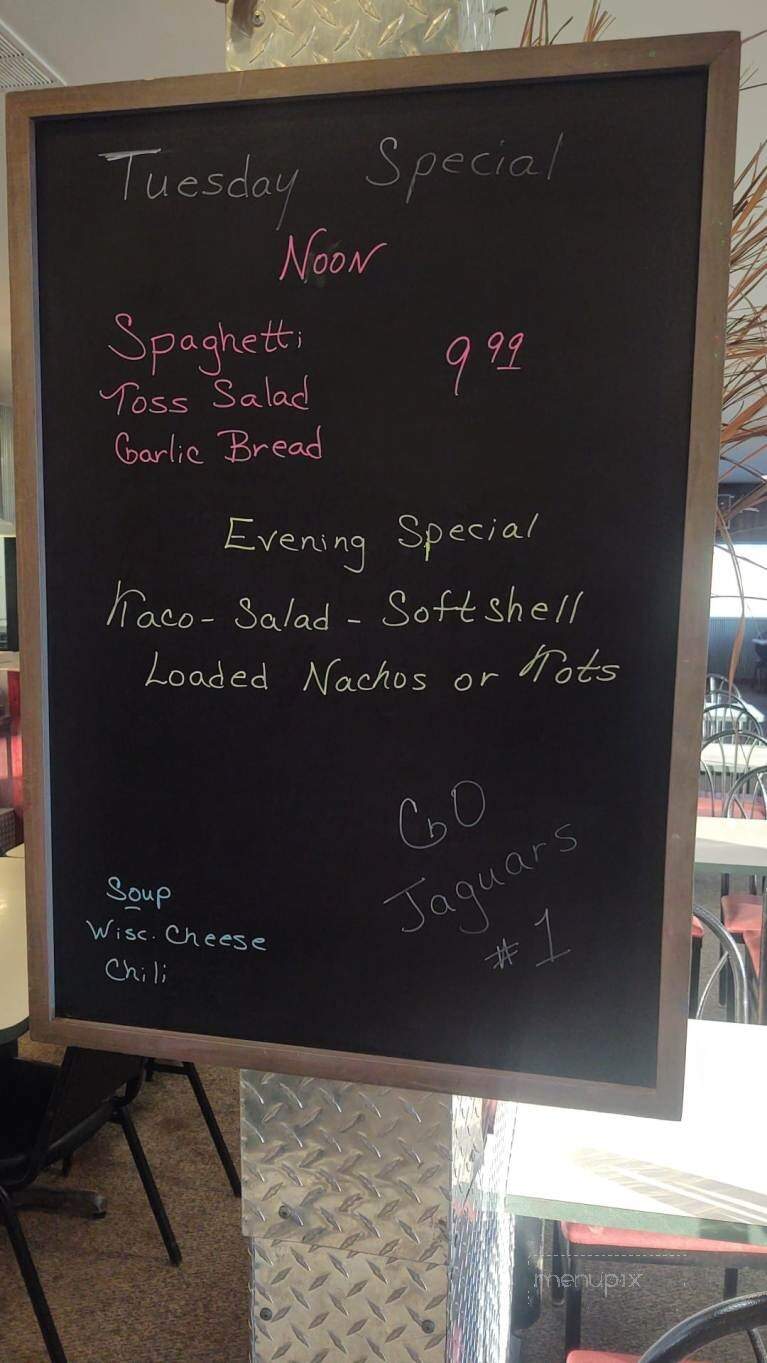 Tuesday Special
Noon
Spaghetti 9 99
Toss Salad
Garlic Bread
Evening Special
Taco - Salad - Softshell
Loaded Nachos or Tots
GO
Jaguars
#1
Soup
Wisc. Cheese
Chili
menupix